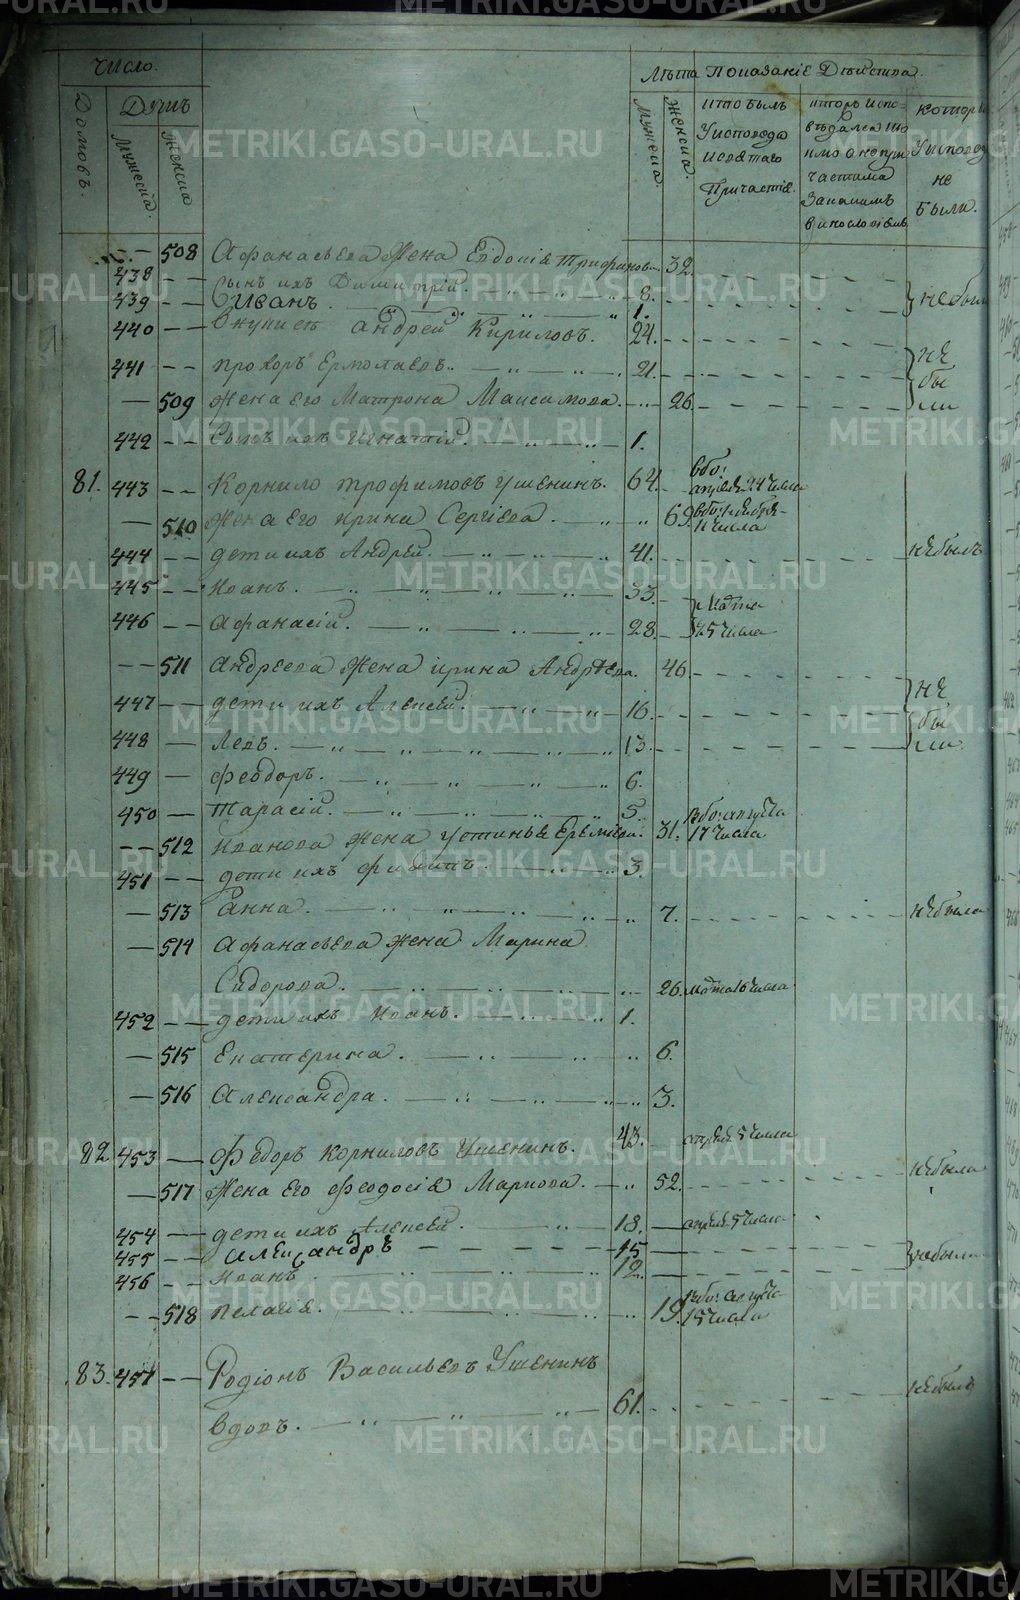 Число.
Лѣта Показанiе Дѣйствiя.
Домовъ
Душъ
Мужеска.
Женска
Мужеска.
Женска.
кто былъ
у исповеди
и святаго
Причастiя.
которы испо-
вѣдался то
кмо а не при
частился
За какимъ
винословiемъ
которы
У исповед
не
были.
508 Афанасьева жена Евдокiя Трифонов 32.
438 сынъ ихъ Димитрiй. 8.
439 Иванъ. 1. небыли
440 Андрей Кириловъ. 24.
441 прохоръ Ермолаевъ. 21. не
509 жена его Матрона Максимова. 26. бы ли
442 Сынъ ихъ Игнатiй. 1.
81. 443 Корнило трофимовъ Ушенинъ. 64. апреля 24 числа
510 жена Его ирина Сергiева. 69. числа
444 дети ихъ Андрей. 41. небылъ
445 Иоанъ. 33.
446 Афанасiй. 28. Марта 25 числа
511 Андреева жена ирина Андреева. 46. не
447 дети ихъ Алексей. 16. бы
448 Левъ. 13. ли
449 Феодоръ. 6.
450 Тарасiй. 5.
512 Иванова жена Устинья Еремiева. 31. августа 17 числа
451 дети ихъ Филипъ. 3.
513 Анна. 7. небыла
514 Афанасьева жена Марина
Сидорова. 26. марта 16 числа
452 дети ихъ Иоанъ. 1.
515 Екатерина. 6.
516 Александра. 3.
82 453 Федоръ Корниловъ Ушенинъ. 43. апреля 5 числа
517 жена его Феодосiя Маркова. 52. небыла
454 дети ихъ Алексей. 18. апреля 5 числа
455 Александръ 15 небыли
456 Иоанъ. 12
518 пелагiя. 19. августа 15 числа
83. 457 Родiонъ Васильевъ Ушенинъ
вдовъ. 61. небылъ
METRIKI.GASO-URAL.RU